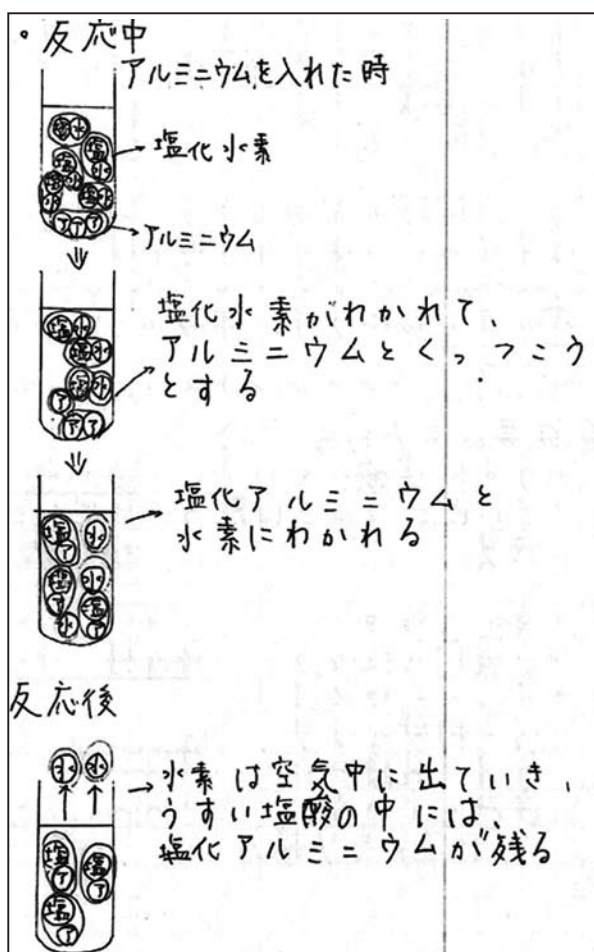 ・反応中
アルミニウムを入れた時
塩化水素
アルミニウム
塩化水素がわかれて、
アルミニウムとくっつこう
とする
塩化アルミニウムと
水素にわかれる
反応後
水 水
水素は空気中に出ていき、
うすい塩酸の中には、
塩化アルミニウムが残る